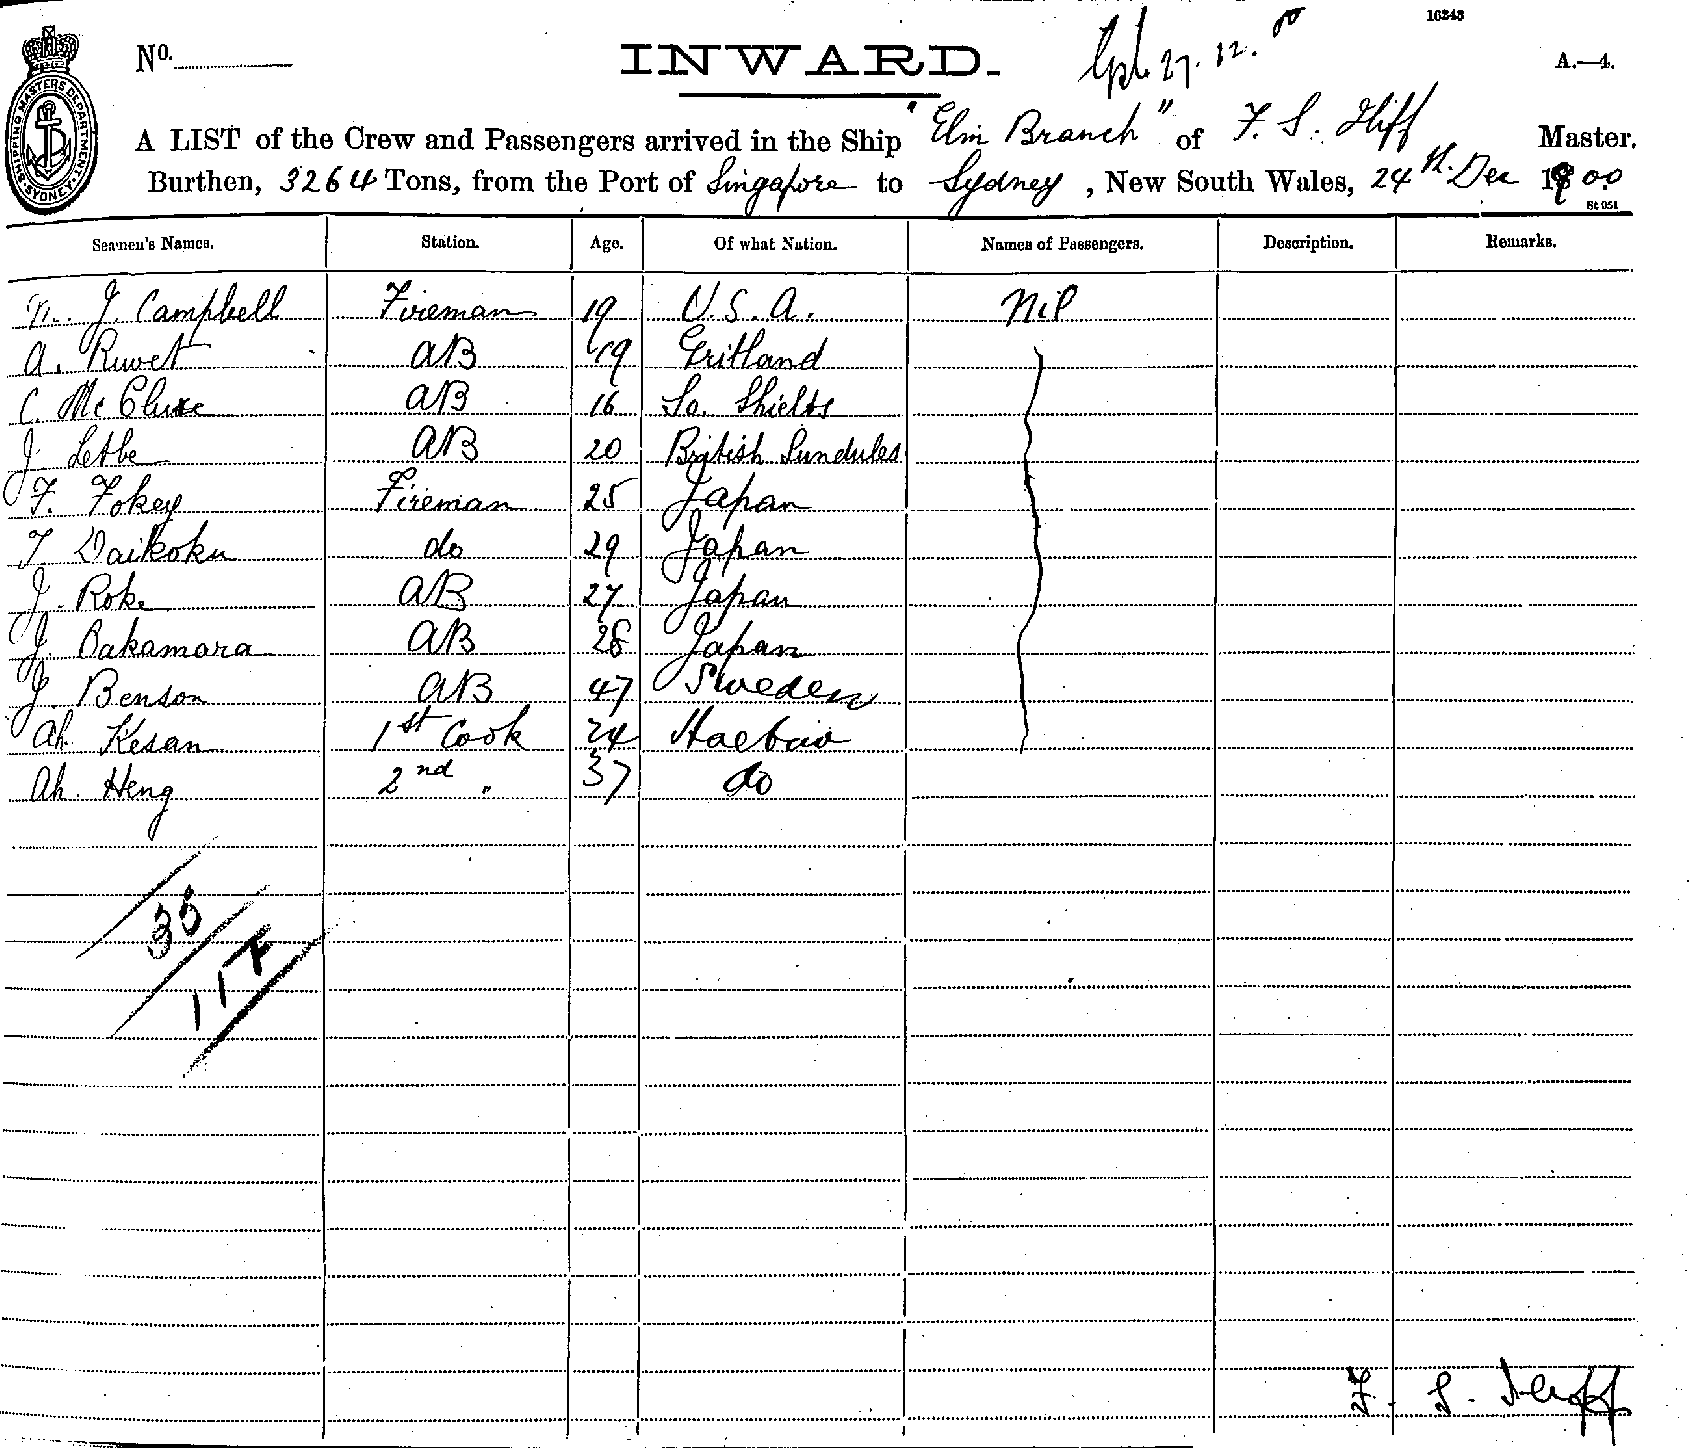 16343
No.
INWARD.
27.12.00
A.—4.
SHIPPING MASTERS DEPARTMENT SYDNEY
A LIST of the Crew and Passengers arrived in the Ship "Elm Branch" of F. S. Iliff Master,
Burthen, 3264 Tons, from the Port of Singapore to Sydney, New South Wales, 24th Dec 1900
St 051
Seamen's Names. Station. Age. Of what Nation. Names of Passengers. Description. Remarks.
J. Campbell Fireman 19 U.S.A. Nil
A. Ruwet AB 19
C. McClure AB 16 So. Shields
J. Letbe AB 20 British
F. Fokey Fireman 25 Japan
T Daikoku do 29 Japan
J. Roke AB 27 Japan
J. Bakamara AB 28 Japan
J. Benson AB 47 Sweden
Ah Kesan 1st Cook 24
Ah. Heng 2nd " 37 do
35
11 F
F. S. Iliff